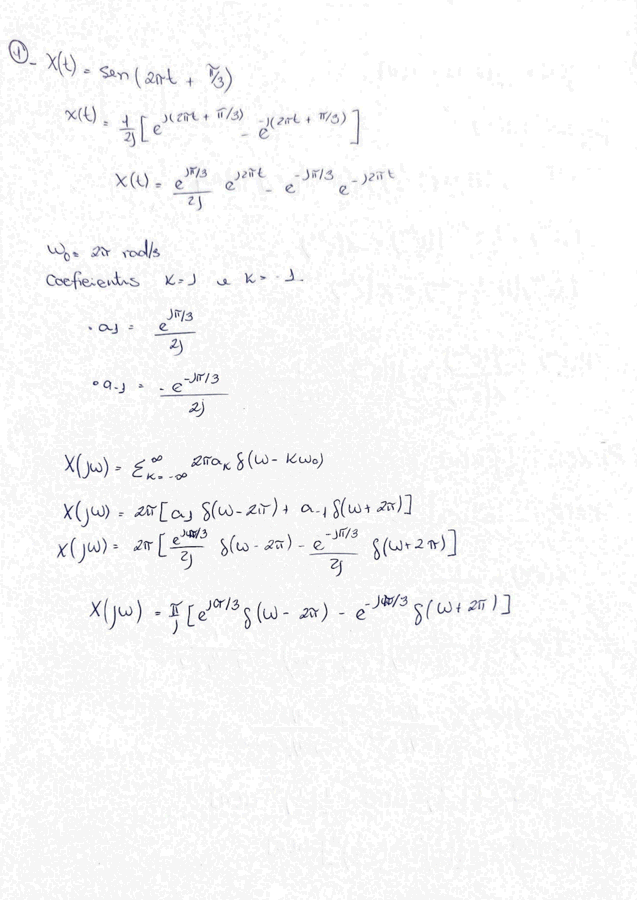 1- X(t) = sen(2πt + π/3)
x(t) = 1/2j [e^j(2πt + π/3) - e^-j(2πt + π/3)]
X(t) = e^jπ/3/2j e^j2πt - e^-jπ/3 e^-j2πt
ω₀ = 2π rad/s
Coeficientes K=1 e K=-1.
• a₁ = e^jπ/3/2j
• a₋₁ = -e^-jπ/3/2j
X(jω) = Σ_K=-∞^∞ 2πa_K δ(ω - Kω₀)
X(jω) = 2π[a₁ δ(ω-2π) + a₋₁ δ(ω+2π)]
X(jω) = 2π[e^jπ/3/2j δ(ω-2π) - e^-jπ/3/2j δ(ω+2π)]
X(jω) = π/j [e^jπ/3 δ(ω - 2π) - e^-jπ/3 δ(ω+2π)]